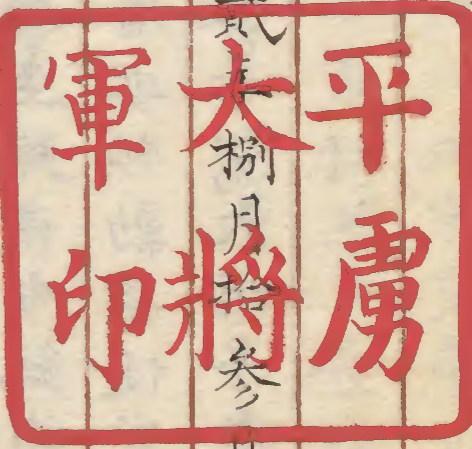 平虜
大將
軍印
貳年捌月拾參